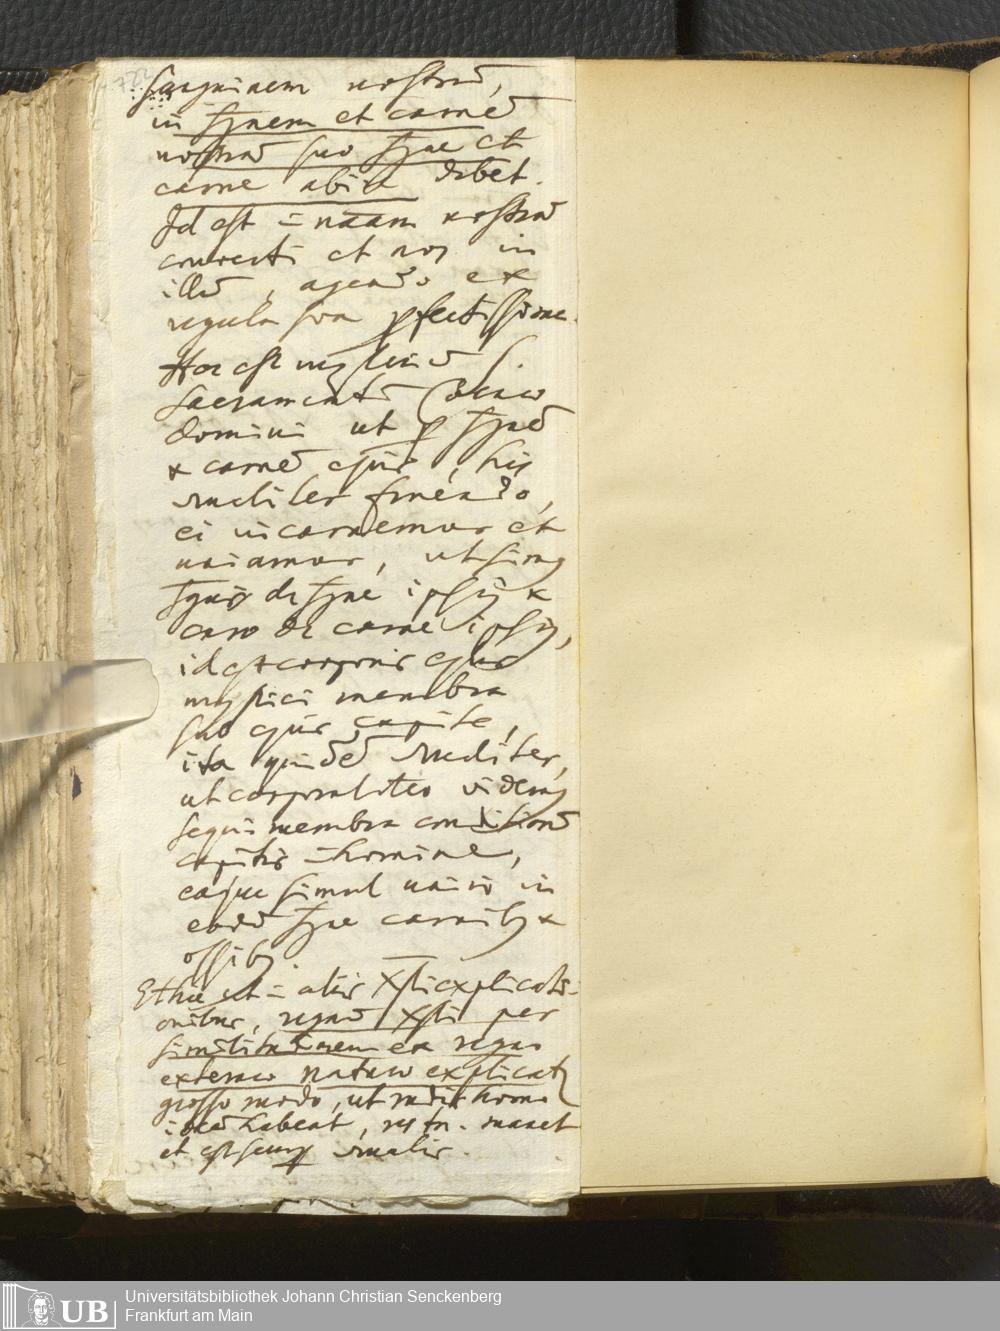 722
Sanguinem nostrū,
in sgnem et carnē
nostrā suo sgne et
carne abire debet.
Id est in nāam nostrā
converti et nos in
illū, agendo ex
regula sua pfectissima.
Hoc est mysteriū S.
Sacramenti Coenae
domini ut p sgnē
& carnē ejus, his
rualiter fruendo,
ei incarnemur et
uniamur, ut simus
sgnis de sgne ipsius &
caro de carne ipsius,
id est corporis ejus
mystici membra
sub ejus capite,
ita quidē rualiter,
ut corporaliter videmus
sequi membra
capitis in homine,
eaque simul unio in
eodē sgne carnibus &
ossibus.
Et hic ut in aliis Xsti explicati-
onibus, regnū Xsti per
similitudinem ex regno
externo naturae explicatur
grosso modo, ut rudis homo
ideā habeat, res tn. manet
et est semp
Universitätsbibliothek Johann Christian Senckenberg
Frankfurt am Main
UB